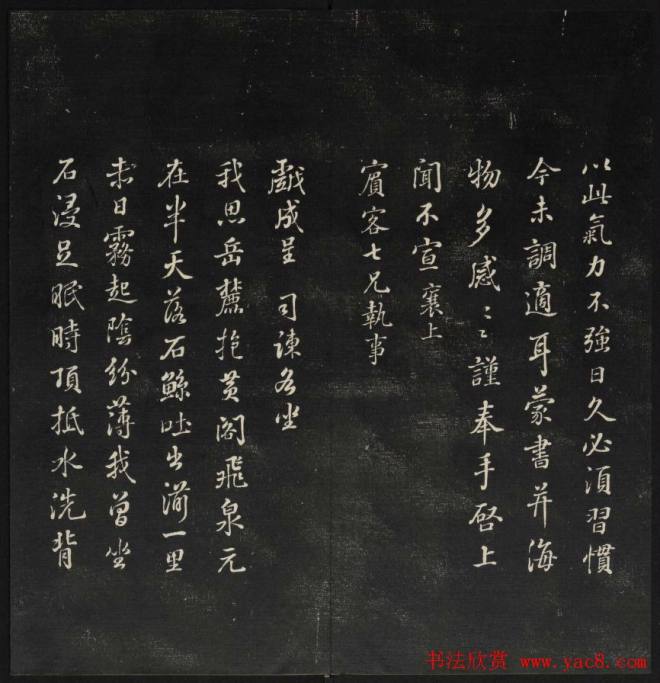 以此氣力不強日久必須習慣
今未調適耳蒙書并海
物多感〻謹奉手啓上
聞不宣襄上
賓客七兄執事
戲成呈 司諫台坐
我思岳麓抱黃閣飛泉元
在半天落石鯨吐出湔一里
赤日霧起陰紛薄我曾坐
石浸足眠時項抵水洗背
书法欣赏 www.yac8.com